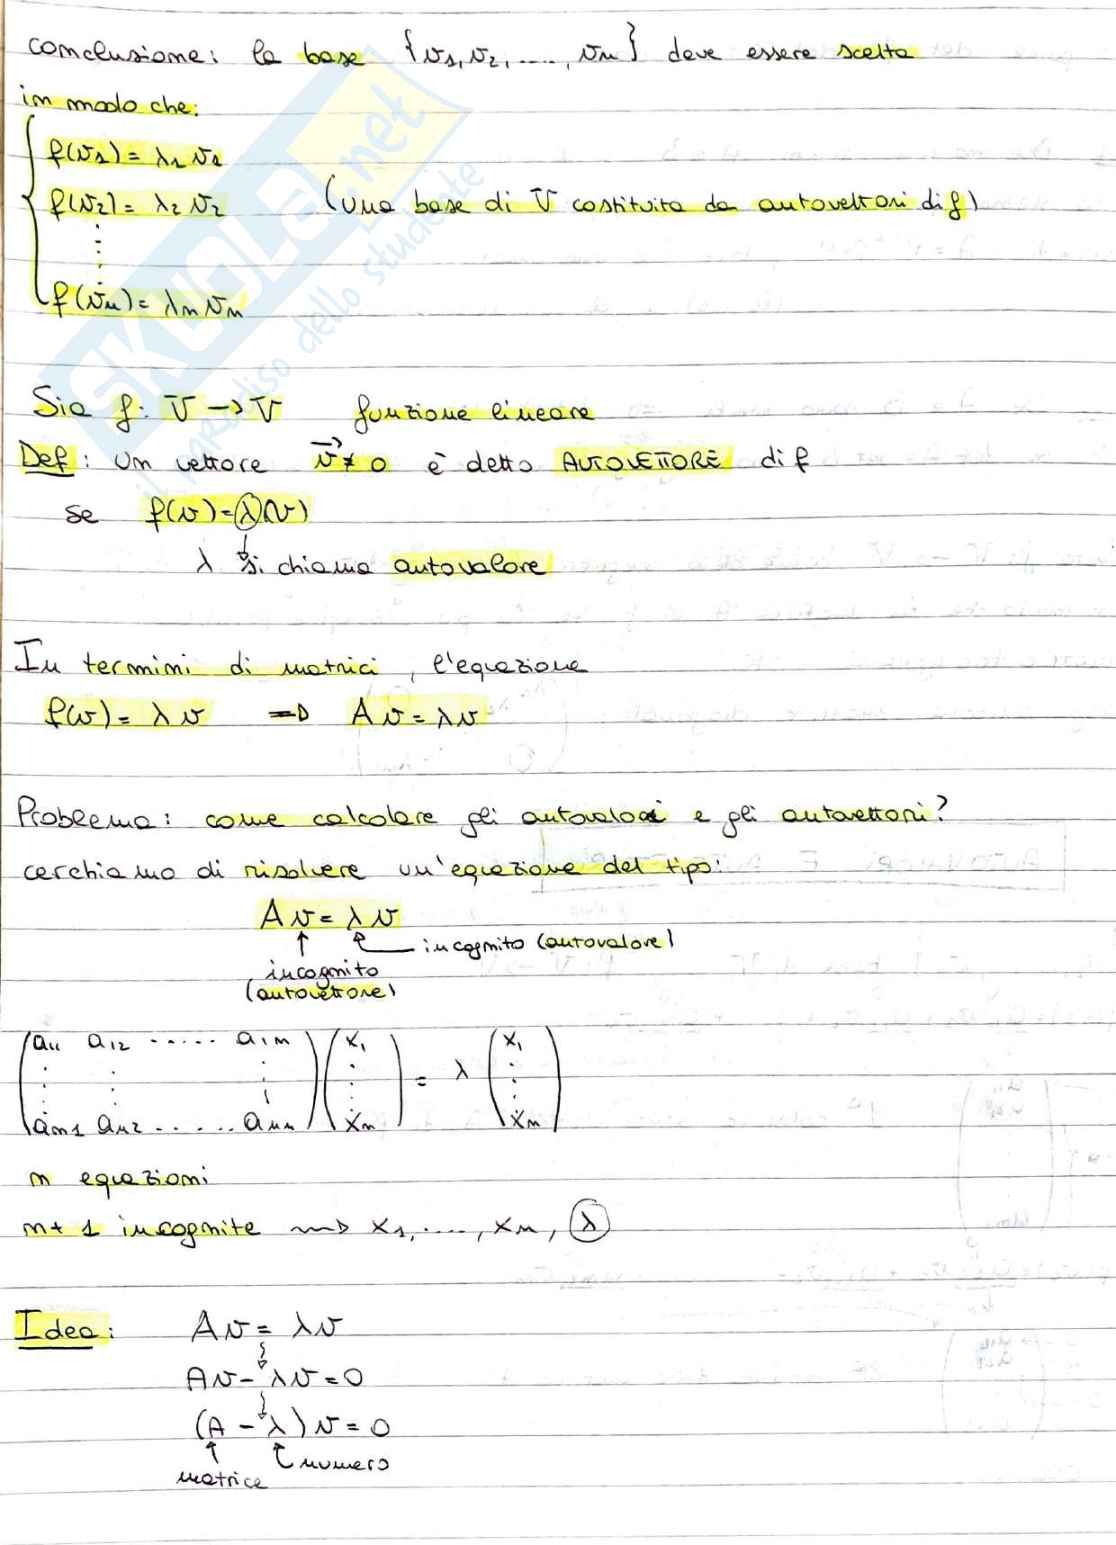 conclusione: la base {v1, v2, ...., vn} deve essere scelta
in modo che:
f(v1) = λ1 v1
f(v2) = λ2 v2 (una base di V costituita da autovettori di f)
⋮
f(vn) = λn vn
Sia f: V → V funzione lineare
Def: un vettore v⃗ ≠ 0 è detto AUTOVETTORE di f
se f(v) = λ(v)
λ si chiama autovalore
In termini di matrici, l'equazione
f(v) = λv ⇒ Av = λv
Problema: come calcolare gli autovalori e gli autovettori?
cerchiamo di risolvere un'equazione del tipo:
Av = λv
↑ ↑ incognito (autovalore)
incognito
(autovettore)
(a11 a12 ..... a1n) (x1) = λ (x1)
⋮ ⋮ ⋮ ⋮ ⋮
(an1 an2 ..... ann) (xn) (xn)
n equazioni
n+1 incognite ⇝ x1, ...., xn, λ
Idea: Av = λv
Av - λv = 0
(A - λ)v = 0
↑ ↑ numero
matrice
SKUOLA.net
il paradiso dello studente